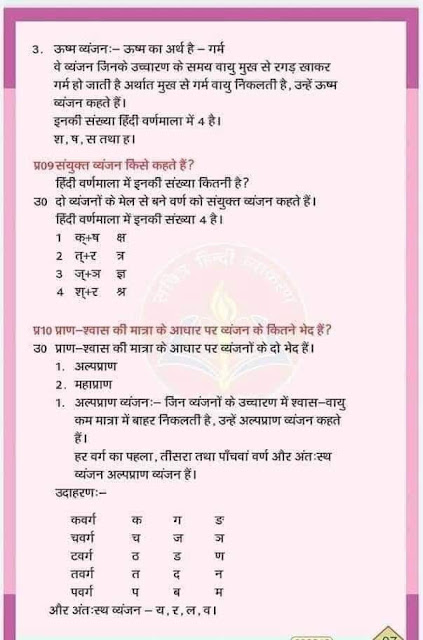 3. ऊष्म व्यंजनः– ऊष्म का अर्थ है – गर्म
वे व्यंजन जिनके उच्चारण के समय वायु मुख से रगड़ खाकर
गर्म हो जाती है अर्थात मुख से गर्म वायु निकलती है, उन्हें ऊष्म
व्यंजन कहते हैं।
इनकी संख्या हिंदी वर्णमाला में 4 है।
श, ष, स तथा ह।
प्र09 संयुक्त व्यंजन किसे कहते हैं?
हिंदी वर्णमाला में इनकी संख्या कितनी है?
उ0 दो व्यंजनों के मेल से बने वर्ण को संयुक्त व्यंजन कहते हैं।
हिंदी वर्णमाला में इनकी संख्या 4 है।
1 क्+ष क्ष
2 त्+र त्र
3 ज्+ञ ज्ञ
4 श्+र श्र
प्र10 प्राण–श्वास की मात्रा के आधार पर व्यंजन के कितने भेद हैं?
उ0 प्राण–श्वास की मात्रा के आधार पर व्यंजनों के दो भेद हैं।
1. अल्पप्राण
2. महाप्राण
1. अल्पप्राण व्यंजनः– जिन व्यंजनों के उच्चारण में श्वास–वायु
कम मात्रा में बाहर निकलती है, उन्हें अल्पप्राण व्यंजन कहते
हैं।
हर वर्ग का पहला, तीसरा तथा पाँचवां वर्ण और अंतःस्थ
व्यंजन अल्पप्राण व्यंजन हैं।
उदाहरणः–
कवर्ग क ग ङ
चवर्ग च ज ञ
टवर्ग ठ ड ण
तवर्ग त द न
पवर्ग प ब म
और अंतःस्थ व्यंजन – य, र, ल, व।